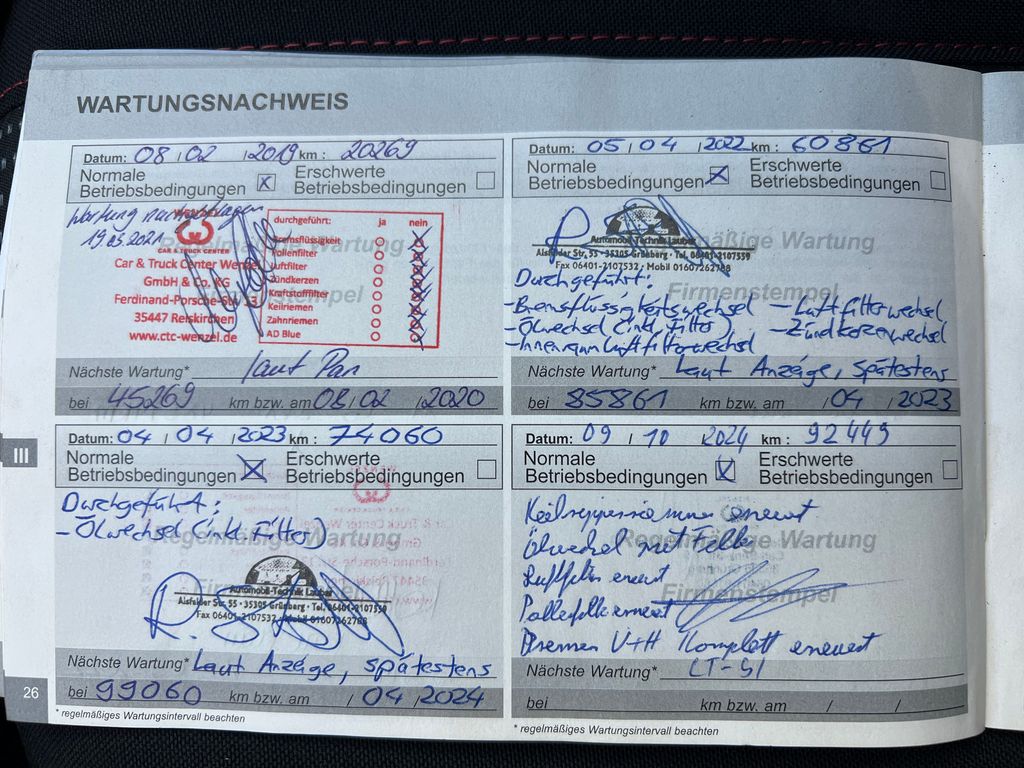 WARTUNGSNACHWEIS
Datum: 08 / 02 / 2019 km : 20269
Normale Betriebsbedingungen X
Erschwerte Betriebsbedingungen
Wartung nachgetragen
19.03.2021
CAR & TRUCK CENTER
Car & Truck Center Wenzel
GmbH & Co. KG
Ferdinand-Porsche-Str. 13
35447 Reiskirchen
www.ctc-wenzel.de
durchgeführt: ja nein
Bremsflüssigkeit
Pollenfilter
Luftfilter
Zündkerzen
Kraftstofffilter
Keilriemen
Zahnriemen
AD Blue
Regelmäßige Wartung
Firmenstempel
Nächste Wartung* laut
bei 45269 km bzw. am 08 / 02 / 2020
Datum: 05 / 04 / 2022 km : 60861
Normale Betriebsbedingungen X
Erschwerte Betriebsbedingungen
Automobil-Technik Lauber
Alsfelder Str. 55 · 35305 Grünberg · Tel. 06401-2107559
Fax 06401-2107532 · Mobil 01607262788
Regelmäßige Wartung
Firmenstempel
Durchgeführt:
- Bremsflüssigkeitswechsel - Luftfilterwechsel
- Ölwechsel (inkl. Filter) - Zündkerzenwechsel
- Innenraumluftfilterwechsel
Nächste Wartung* Laut Anzeige, spätestens
bei 85861 km bzw. am / 04 / 2023
Datum: 04 / 04 / 2023 km : 74060
Normale Betriebsbedingungen X
Erschwerte Betriebsbedingungen
Durchgeführt:
- Ölwechsel (inkl. Filter)
Regelmäßige Wartung
Firmenstempel
Automobil-Technik Lauber
Alsfelder Str. 55 · 35305 Grünberg · Tel. 06401-2107559
Fax 06401-2107532 · Mobil 01607262788
Nächste Wartung* Laut Anzeige, spätestens
bei 99060 km bzw. am / 04 / 2024
* regelmäßiges Wartungsintervall beachten
Datum: 09 / 10 2024 km : 92449
Normale Betriebsbedingungen X
Erschwerte Betriebsbedingungen
erneuert
Ölwechsel mit
Regelmäßige Wartung
Luftfilter erneuert
Firmenstempel
erneuert
Bremsen V+H Komplett erneuert
Nächste Wartung*
bei km bzw. am / /
* regelmäßiges Wartungsintervall beachten
III
26